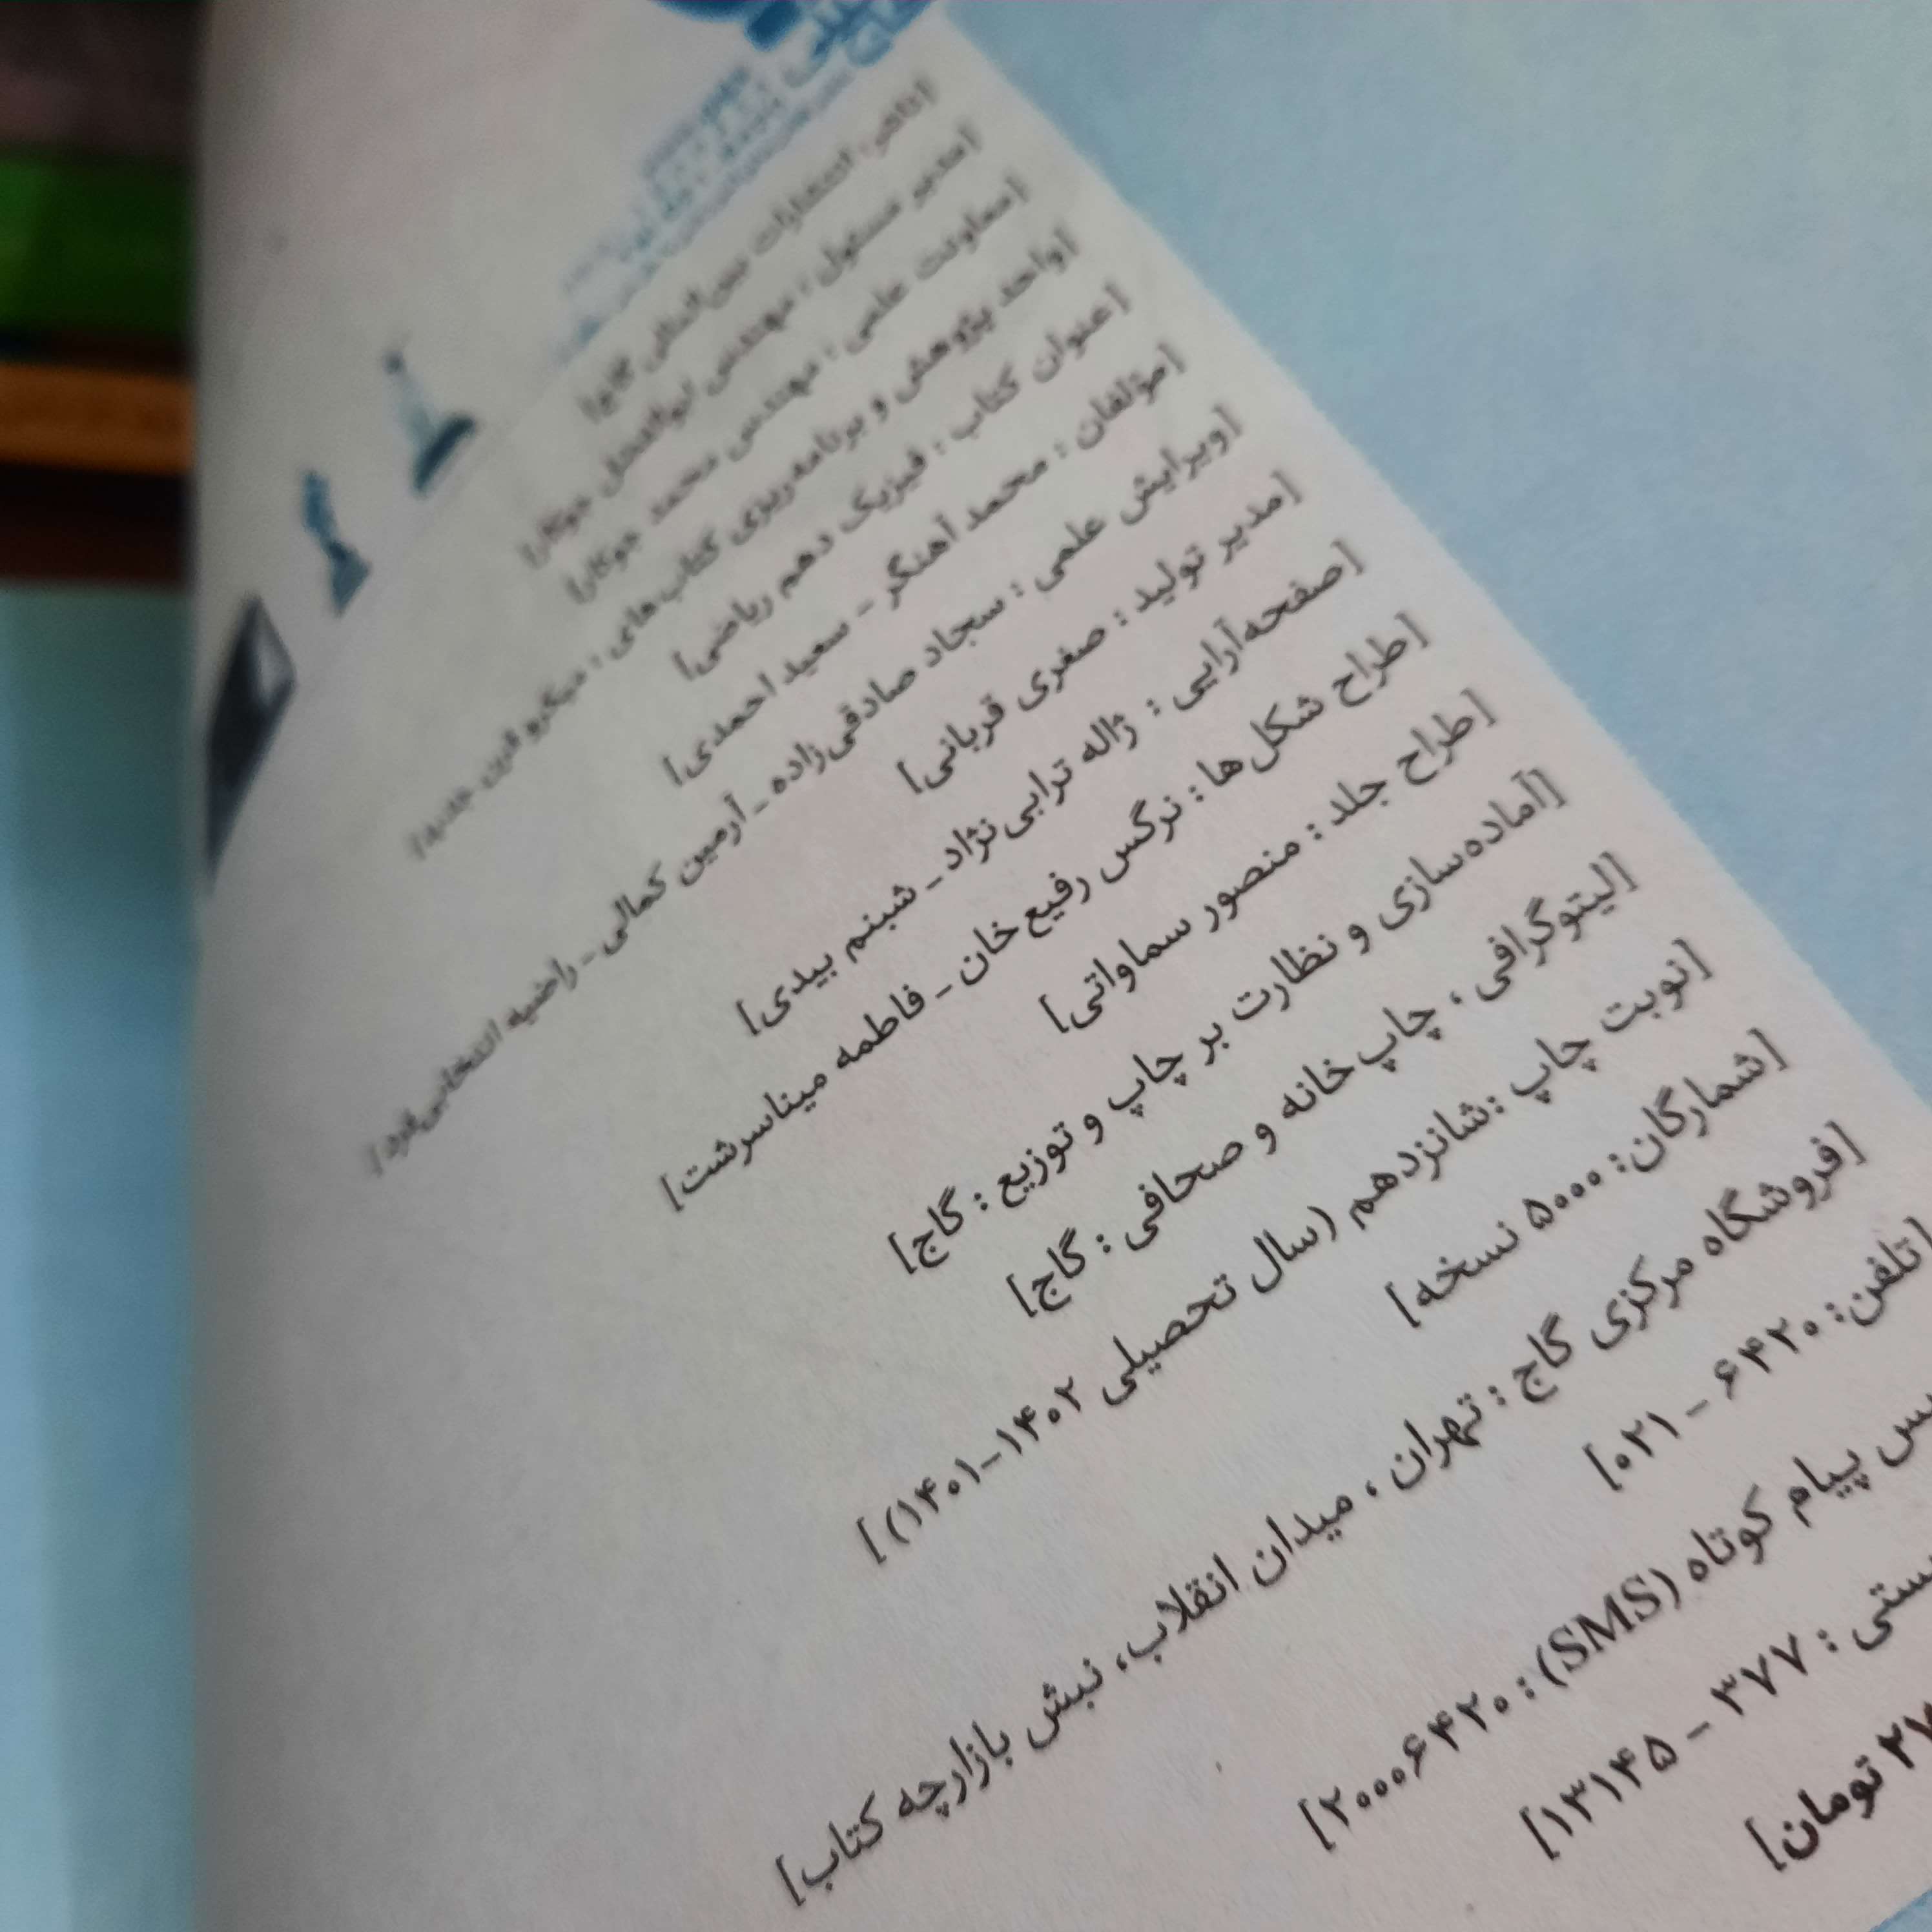 [ناشر: انتشارات بین‌المللی گاج]
[مدیر مسئول : مهندس ابوالفضل جوکار]
[معاونت علمی : مهندس محمد جوکار]
[واحد پژوهش و برنامه‌ریزی کتاب‌های : میکرو قرن جدید]
[عنوان کتاب : فیزیک دهم ریاضی]
[مؤلفان : محمد آهنگر - سعید احمدی]
[ویرایش علمی : سجاد صادقی‌زاده - آرمین کمالی - راضیه انتخابی‌فرد]
[مدیر تولید : صغری قربانی]
[صفحه‌آرایی : ژاله ترابی‌نژاد - شبنم بیدی]
[طراح شکل‌ها : نرگس رفیع‌خان - فاطمه میناسرشت]
[طراح جلد : منصور سماواتی]
[آماده‌سازی و نظارت بر چاپ و توزیع : گاج]
[لیتوگرافی ، چاپ‌خانه و صحافی : گاج]
[نوبت چاپ :شانزدهم (سال تحصیلی ۱۴۰۲-۱۴۰۱) ]
[شمارگان: ۵۰۰۰ نسخه]
[فروشگاه مرکزی گاج : تهران ، میدان انقلاب، نبش بازارچه کتاب]
[تلفن: ۶۴۲۰ - ۰۲۱]
پیام کوتاه (SMS) : ۲۰۰۰۶۴۲۰]
: ۳۷۷ - ۱۳۱۴۵]
تومان]